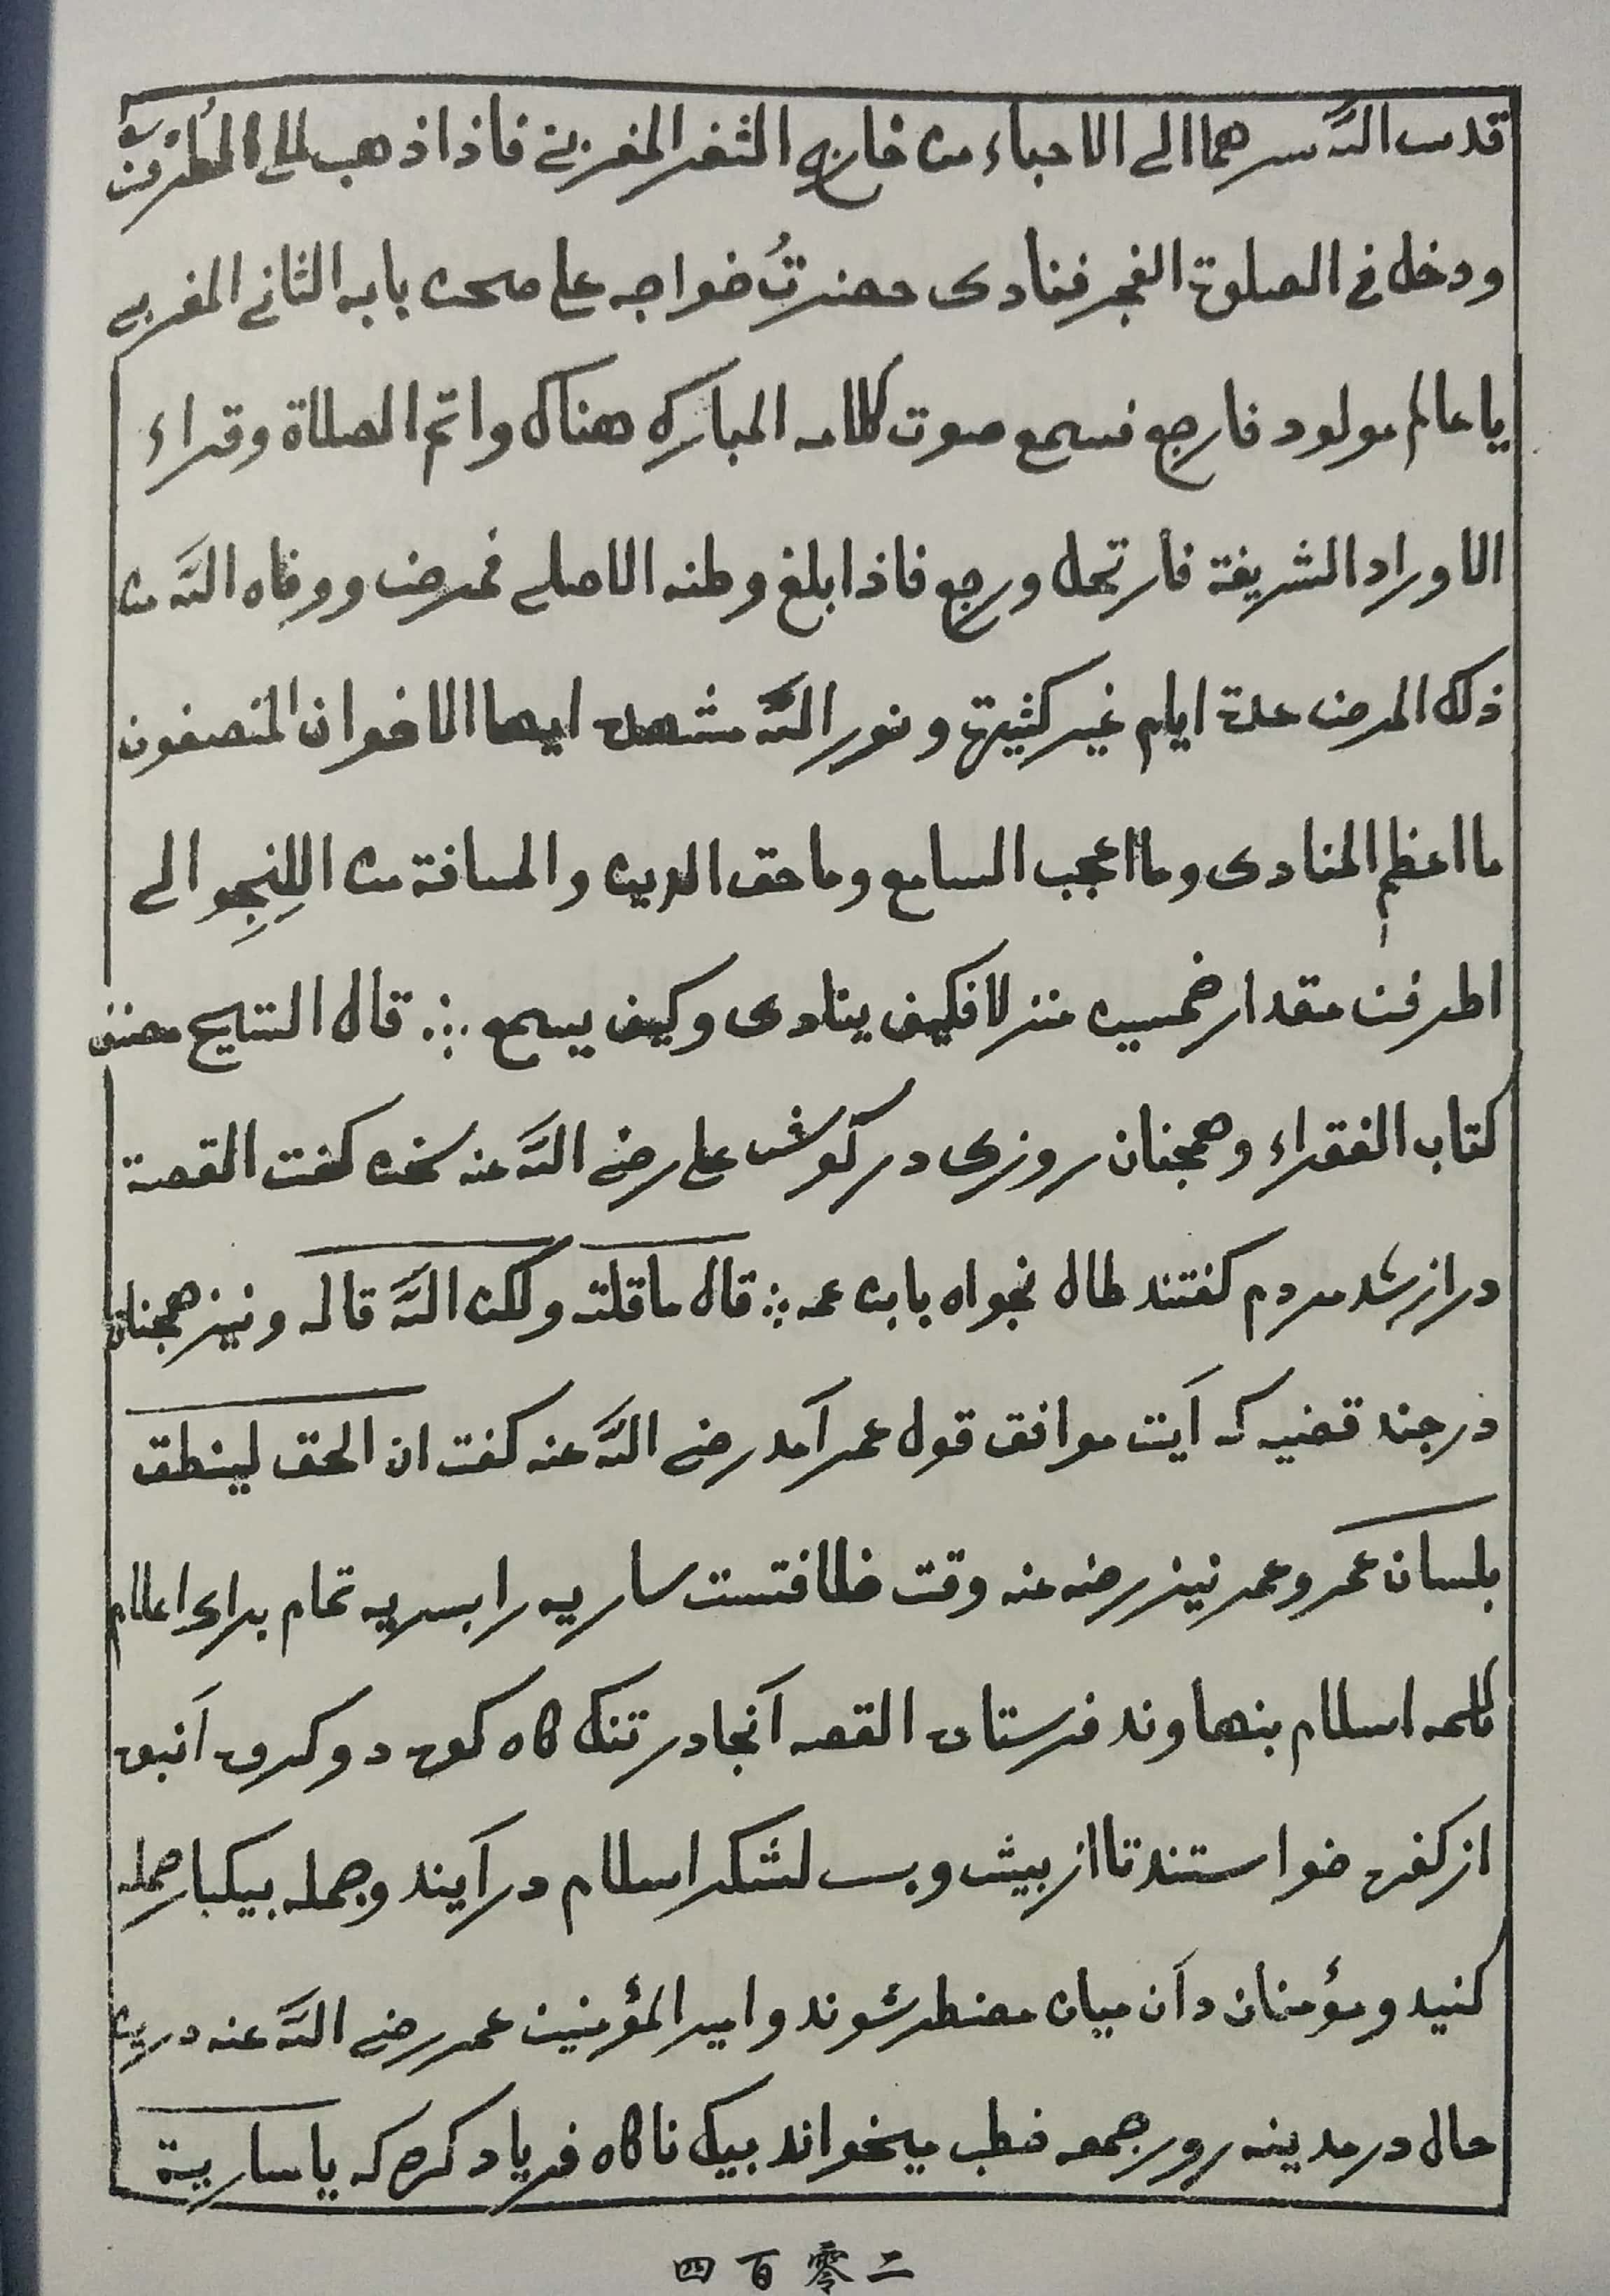 قدس الله سرهما الى الاحباء من خارج الثغر المغربي فاذا ذهب
ودخل في الصلوة الفجر فنادى حضرتُ خواجه على صحن بابه الثاني المغربي
يا عالم مولود فارجع فسمع صوت كلامه المبارك هناك واتم الصلاة وقراء
الاوراد الشريفة فأرتحل ورجع فاذا بلغ وطنه الاصلي فمرض ووفاه الله من
ذلك المرض عدة ايام غير كثيرة ونور الله مشهده ايها الاخوان المنصفون
ما اعظم المنادى وما اعجب السامع وما حق الدين والمسافة من اللِنجِو الى
اطرفن مقدار خمسين منزلا فكيف ينادى وكيف يسمع ∴ قال الشيخ مصنف
كتاب الفقراء وهمچنان روزى در گوش على رضي الله عنه سخن گفت القصة
دراز شد مردم گفتند طال نجواه بابن عمه ∴ قال ما قلته ولكن الله قاله ونيز همچنان
در چند قضيه كه آيت موافق قول عمر آمد رضي الله عنه گفت ان الحق لينطق
بلسان عمر وعمر نيز رضه عنه وقت خلافتست ساريه را بسريه تمام براى اعلام
كلمه اسلام بنهاوند فرستاد القصه آنجا در تنگ گاه كوه دو كروه انبوه
از كفره خواستند تا از پيش و پس لشكر اسلام درآيند وجمله بيكبار حمله
كنيد ومؤمنان دآن ميان مضطر شوند وامير المؤمنين عمر رضي الله عنه درين
حال در مدينه روز جمعه خطب ميخواند بيك ناگاه فرياد كرد كه يا سارية
四百零二